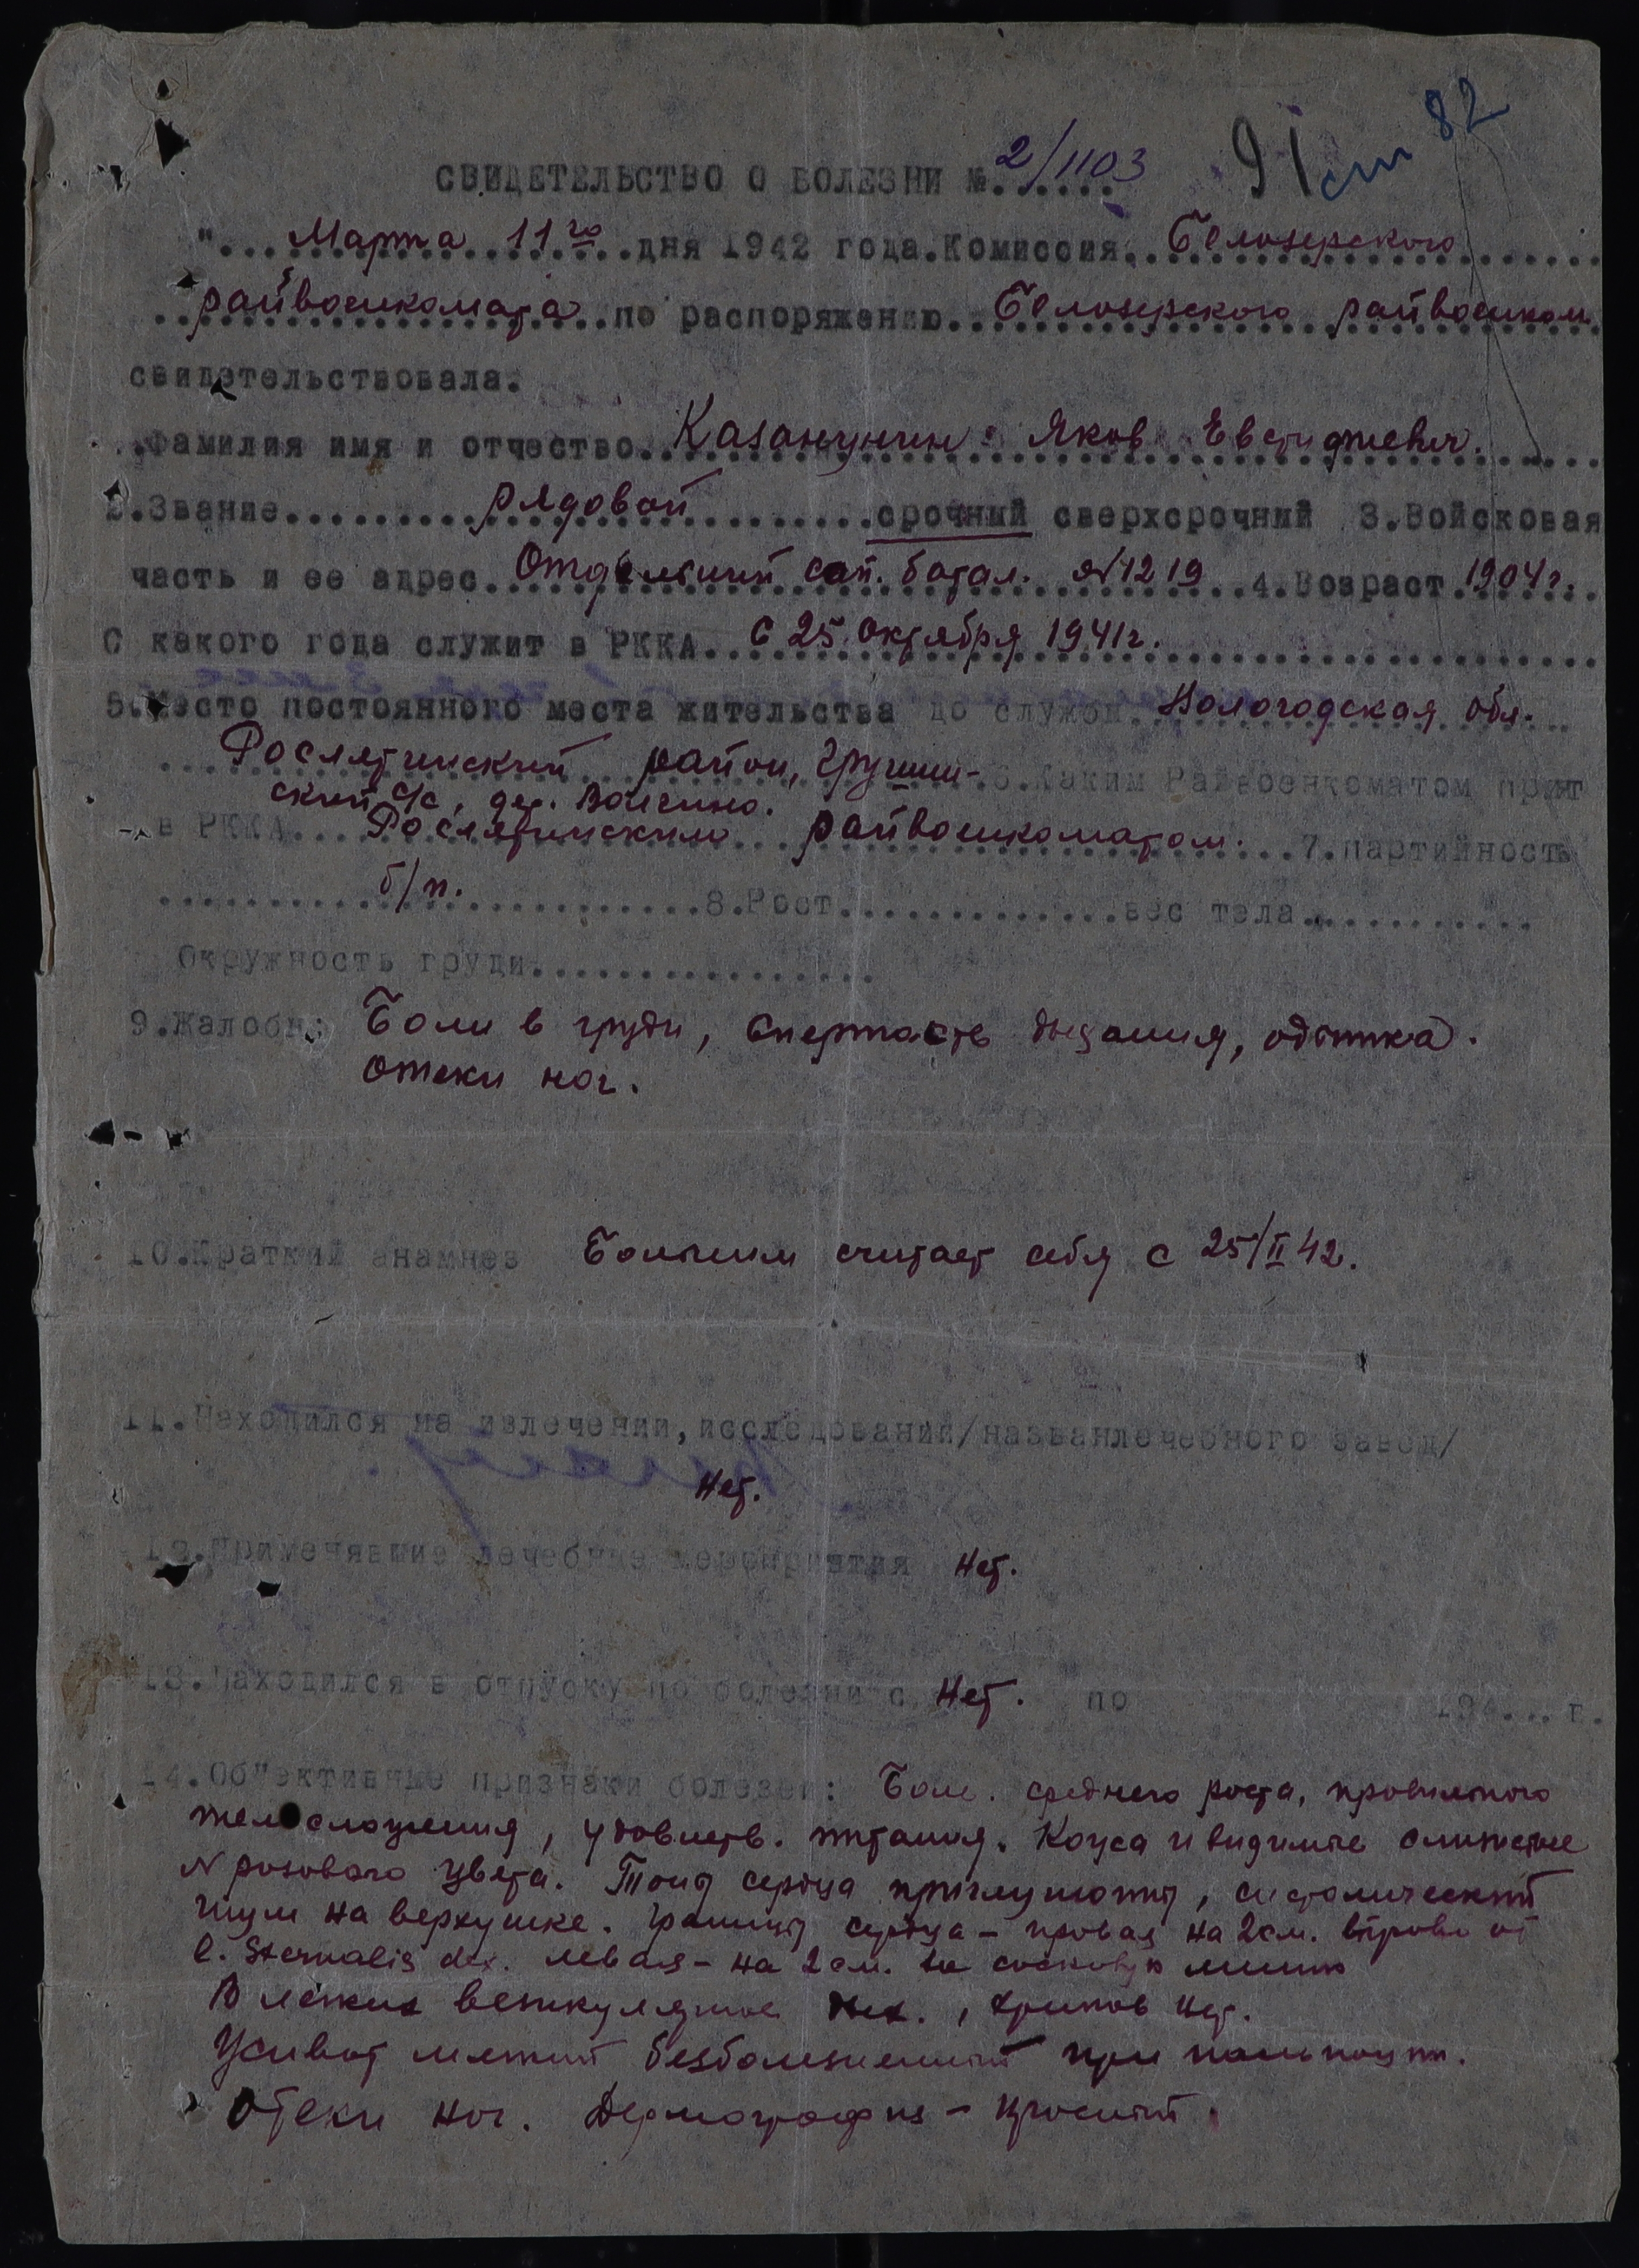 82
91 ст
СВИДЕТЕЛЬСТВО О БОЛЕЗНИ №. 2/1103
"... Марта 11го ..дня 1942 года.Комиссия. Белозерского
райвоенкомата ..по распоряжению.. Белозерского райвоенком
свидетельствовала.
.Фамилия имя и отчество.. Яков Евстигнеевич.
2.Звание...... рядовой ......срочный сверхсрочний 3.Войсковая
часть и ее адрес.. Отдельный сап. батал. №1219 ..4.Возраст 1904г.
С какого года служит в РККА.. с 25 Октября 1941г.
5.Место постоянного места жительства до службы.. Вологодская обл.
Рослятинский район,
6.Каким Райвоенкоматом принят
ский с/с, дер.
в РККА... Рослятинским райвоенкоматом. ..7.партийность
б/п. ......8.Рост..........вес тела...........
Окружность груди.................
9.Жалобы: Боли в груди, спертость дыхания, одышка.
Отеки ног.
10.Краткий анамнез Больным считает себя с 25/II 42.
11.Находился на излечении,исследовании/названлечебного завед/
Нет.
12.Применявшие лечебные мероприятия Нет.
13.Находился в отпуску по болезни с Нет. по 194... г.
14.Об"ективные признаки болезни: Боль. среднего роста, правильного
телосложения, удовлетв. питания. Кожа и видимые слизистые
N розового цвета. Тоны сердца приглушоны, систолический
шум на верхушке. Границы сердца - правая на 2 см. вправо от
l. Sternalis dex. левая - на 2 см. за сосковую линию
В легких везикулярное дых., хрипов нет.
Живот мягкий безболезненный при пальпации.
Отеки ног. Дермографизм - красный.